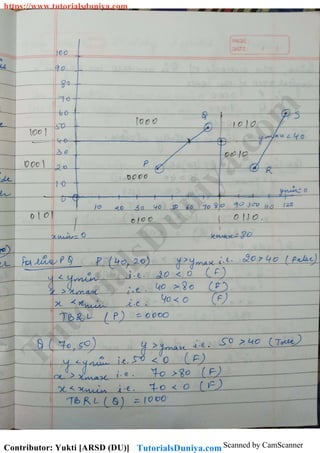 https://www.tutorialsduniya.com
PAGE
DATE
100
90
80
70
60
50
40
30
20
10
0
1001
1000
Q
1010
S
ymax=40
0001
P
0010
0000
R
ymin=0
10 20 30 40 50 60 70 80 90 100 110 120
0101
0100
0110
xmin=0
xmax=80
For line PQ P (40,20) y>ymax i.e. 20>40 (False)
y<ymin i.e. 20<0 (F)
x>xmax i.e. 40>80 (F)
x<xmin i.e. 40<0 (F)
TBRL (P) = 0000
Q (70,50) y>ymax i.e. 50>40 (True)
y<ymin i.e. 50<0 (F)
x>xmax i.e. 70>80 (F)
x<xmin i.e. 70<0 (F)
TBRL (Q) = 1000
TutorialsDuniya.com
Contributor: Yukti [ARSD (DU)] TutorialsDuniya.com Scanned by CamScanner